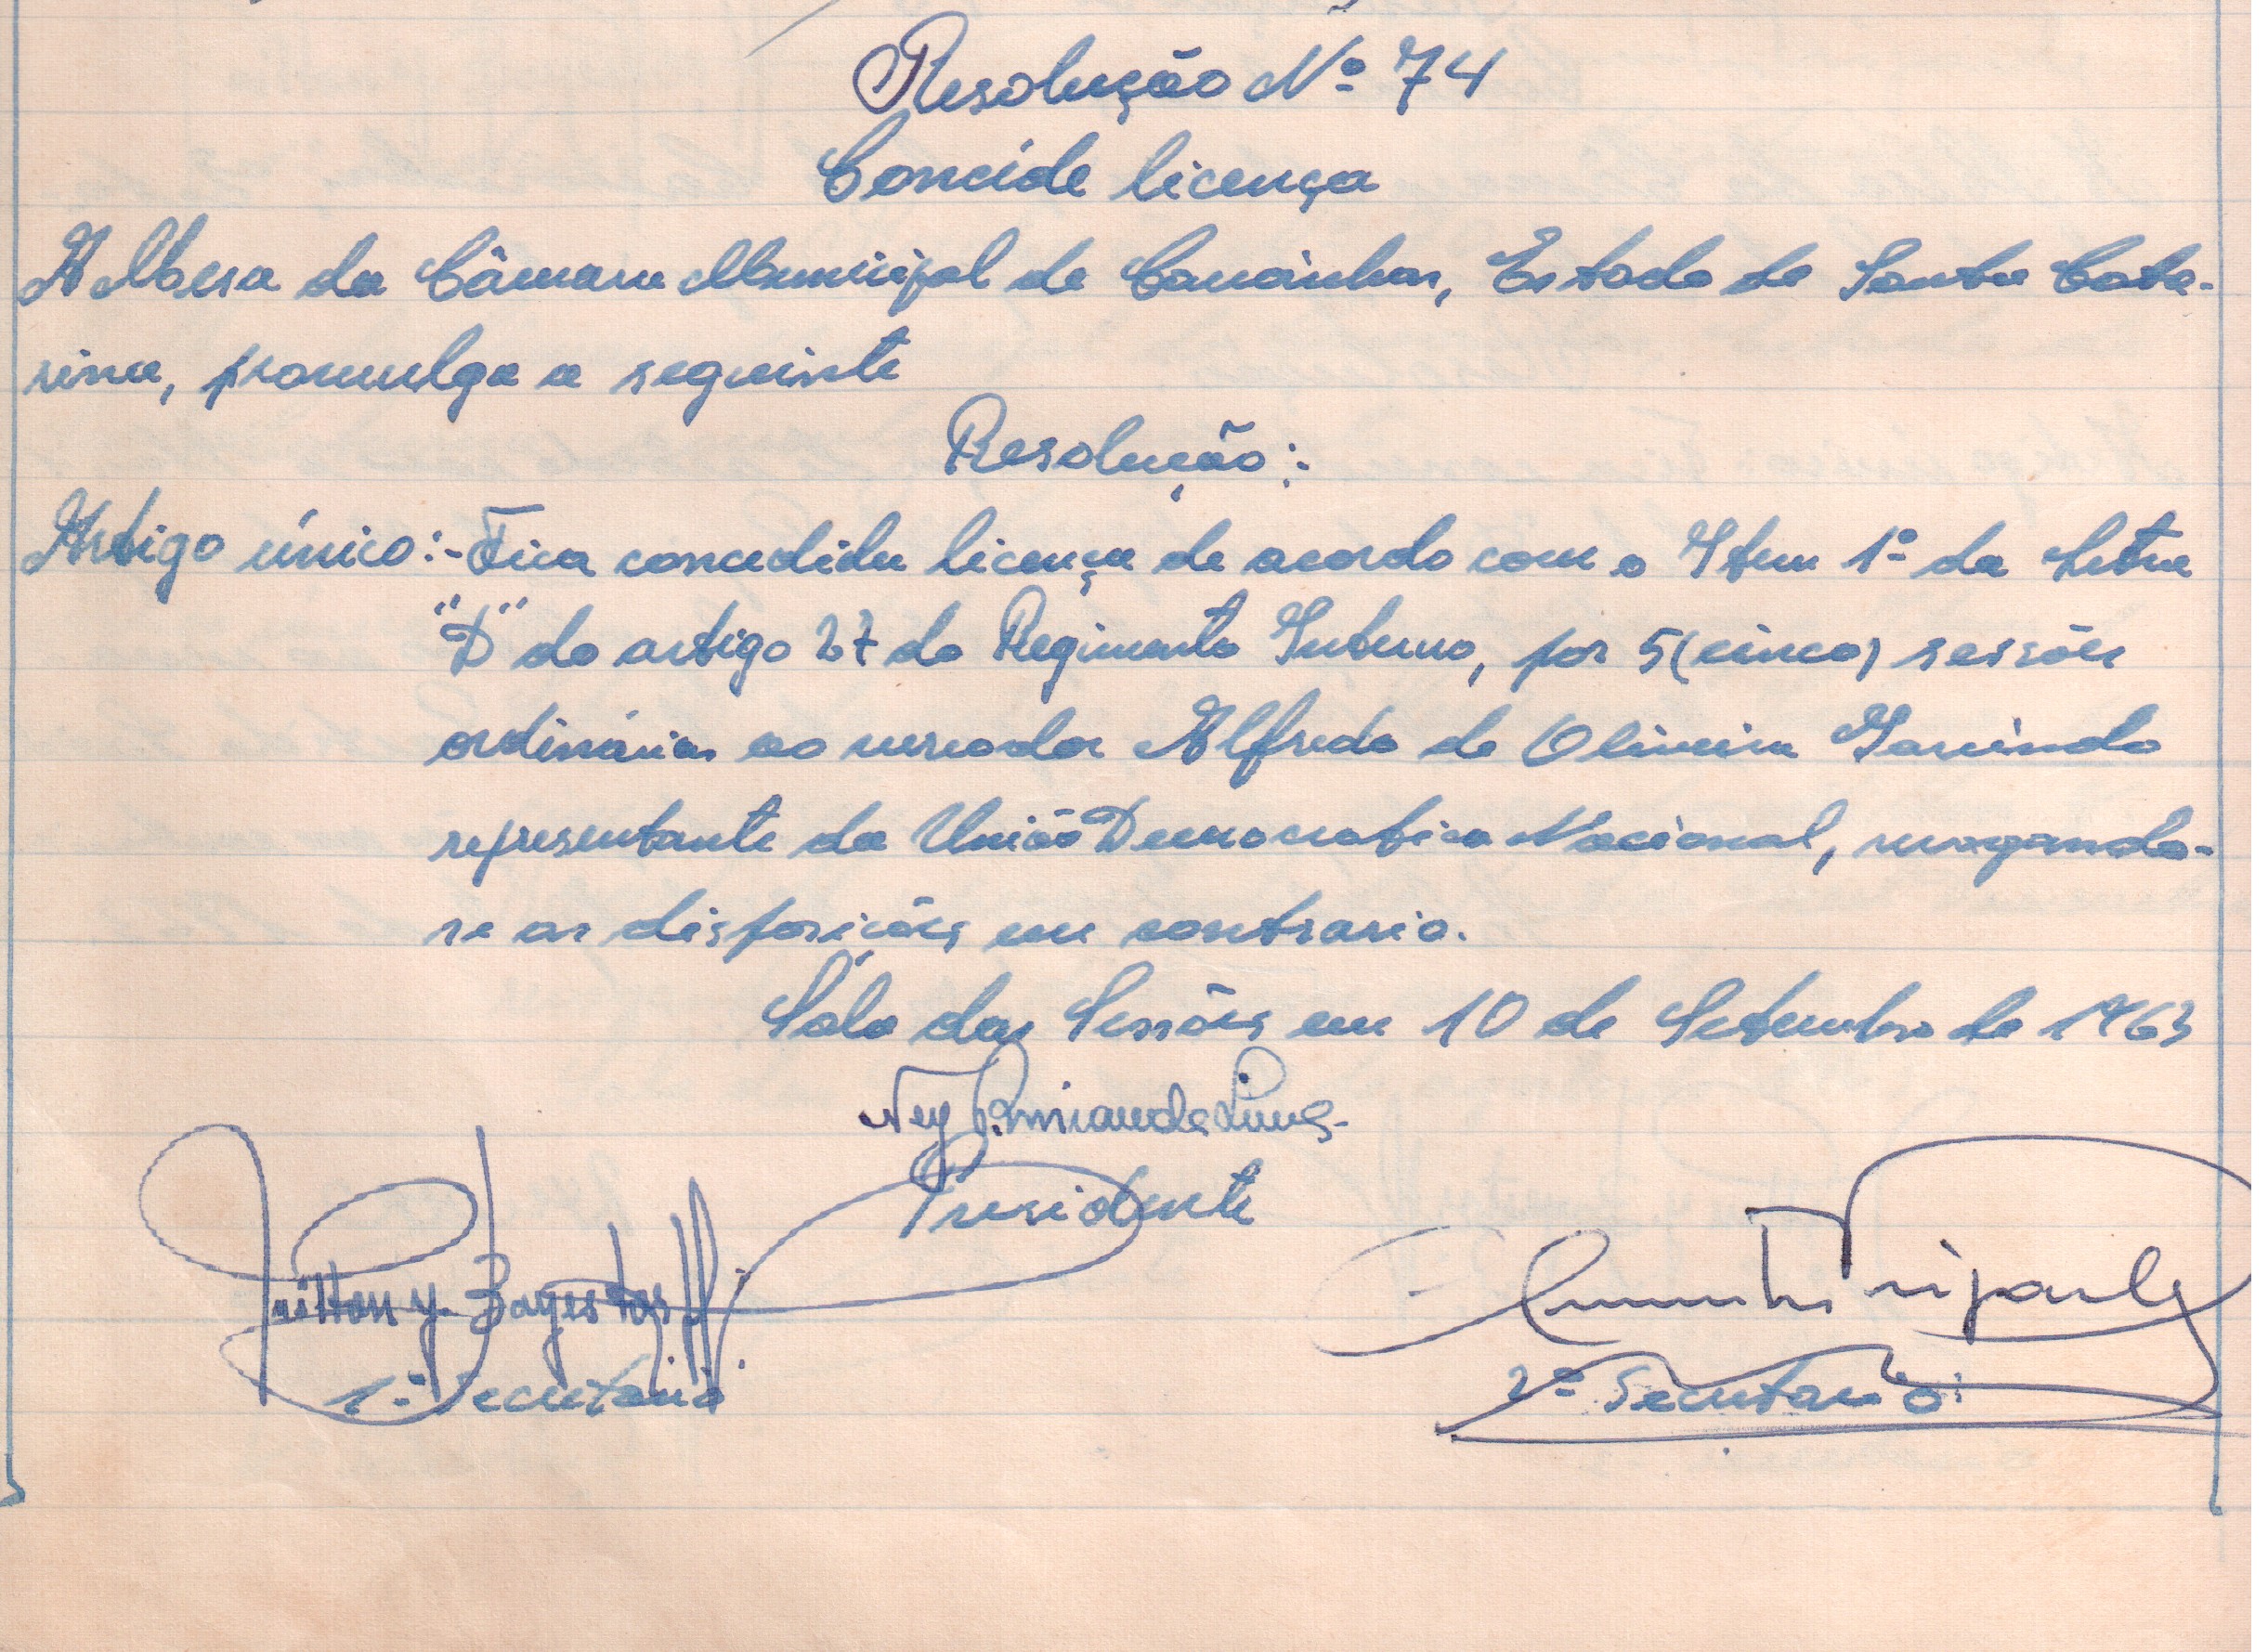 Resolução Nº 74
Concéde licença
A Mesa da Câmara Municipal de Canoinhas, Estado de Santa Cata-
rina, promulga a seguinte
Resolução:
Artigo único:- Fica concedida licença de acordo com o Item 1º da Letra
"D" do artigo 27 do Regimento Interno, por 5 (cinco) sessões
ordinárias ao vereador Alfredo de Oliveira Garcindo
representante da União Democratica Nacional, revogando-
se as disposições em contrario.
Sala das Sessões em 10 de Setembro de 1963
Ney
Presidente
1º Secretario
2º Secretario